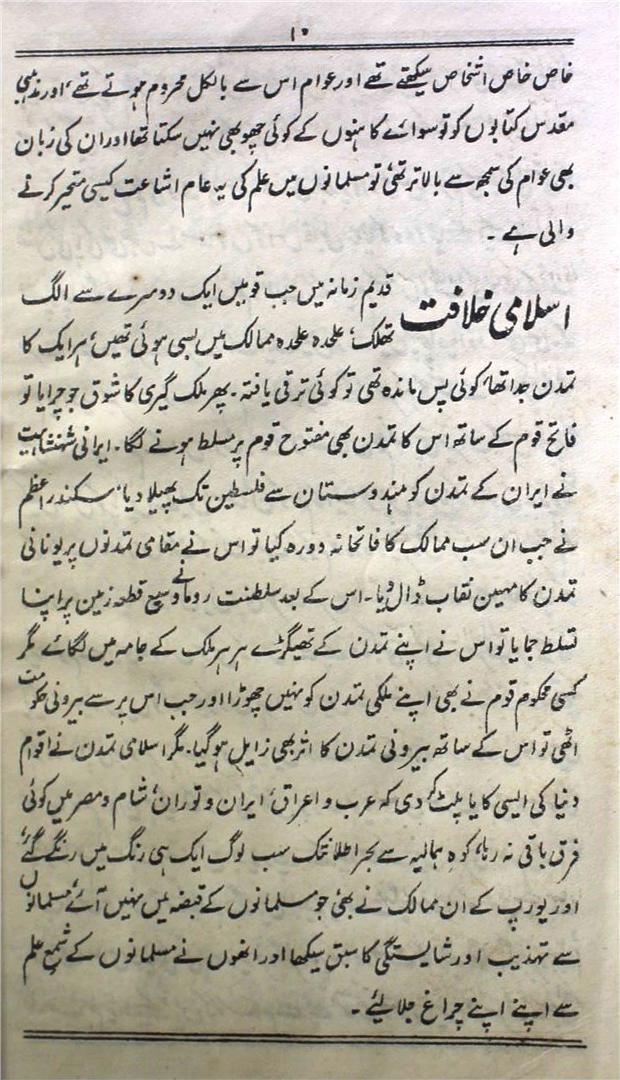 ۱۰
خاص خاص اشخاص سیکھتے تھے اور عوام اس سے بالکل محروم ہوتے تھے، اور مذہبی
مقدس کتابوں کو تو سوائے کاہنوں کے کوئی چھو بھی نہیں سکتا تھا اور ان کی زبان
بھی عوام کی سمجھ سے بالاتر تھی، تو مسلمانوں میں علم کی یہ عام اشاعت کیسی متحیر کرنے
والی ہے۔
اسلامی خلافت قدیم زمانہ میں جب قومیں ایک دوسرے سے الگ
تھلگ، علحدہ علحدہ ممالک میں بسی ہوئی تھیں، ہر ایک کا
تمدن جدا تھا، کوئی پس ماندہ تھی تو کوئی ترقی یافتہ۔ پھر ملک گیری کا شوق جو چرایا تو
فاتح قوم کے ساتھ اس کا تمدن بھی مفتوح قوم پر مسلط ہونے لگا۔ ایرانی شہنشاہیت
نے ایران کے تمدن کو ہندوستان سے فلسطین تک پھیلا دیا، سکندر اعظم
نے جب ان سب ممالک کا فاتحانہ دورہ کیا تو اس نے مقامی تمدنوں پر یونانی
تمدن کا مہین نقاب ڈال دیا۔ اس کے بعد سلطنت روما نے وسیع قطعہ زمین پر اپنا
تسلط جمایا تو اس نے اپنے تمدن کے تھیگڑے ہر ہر ملک کے جامہ میں لگائے مگر
کسی محکوم قوم نے بھی اپنے ملکی تمدن کو نہیں چھوڑا اور جب اس پر سے بیرونی حکومت
اٹھی تو اس کے ساتھ بیرونی تمدن کا اثر بھی زایل ہو گیا۔ مگر اسلامی تمدن نے اقوام
دنیا کی ایسی کایا پلٹ کر دی کہ عرب و اعراق، ایران و توران، شام و مصر میں کوئی
فرق باقی نہ رہا، کوہ ہمالیہ سے بحر اطلانتک سب لوگ ایک ہی رنگ میں رنگے گئے،
اور یورپ کے ان ممالک نے بھی جو مسلمانوں کے قبضہ میں نہیں آئے، مسلمانوں
سے تہذیب اور شایستگی کا سبق سیکھا اور انھوں نے مسلمانوں کے شمع علم
سے اپنے اپنے چراغ جلائے۔